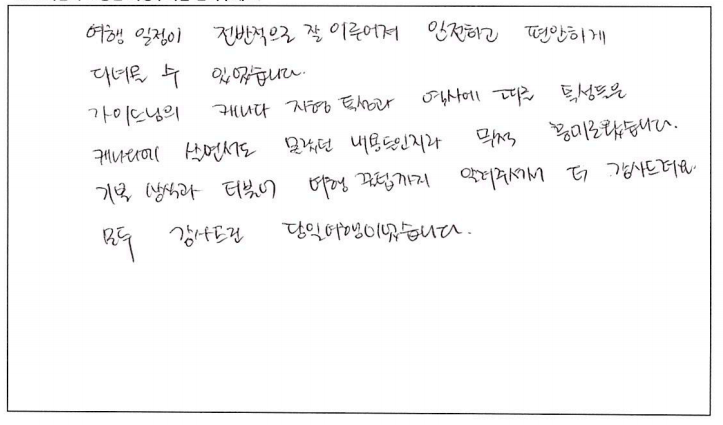 여행 일정이 전반적으로 잘 이루어져 안전하고 편안하게
다녀올 수 있었습니다.
가이드님의 캐나다 지형 특성과 역사에 따른 특성들은
캐나다에 살면서도 몰랐던 내용들인지라 무척 흥미로왔습니다.
기본 상식과 더불어 여행 꿀팁까지 알려주셔서 더 감사드려요.
모두 감사드린 당일여행이었습니다.